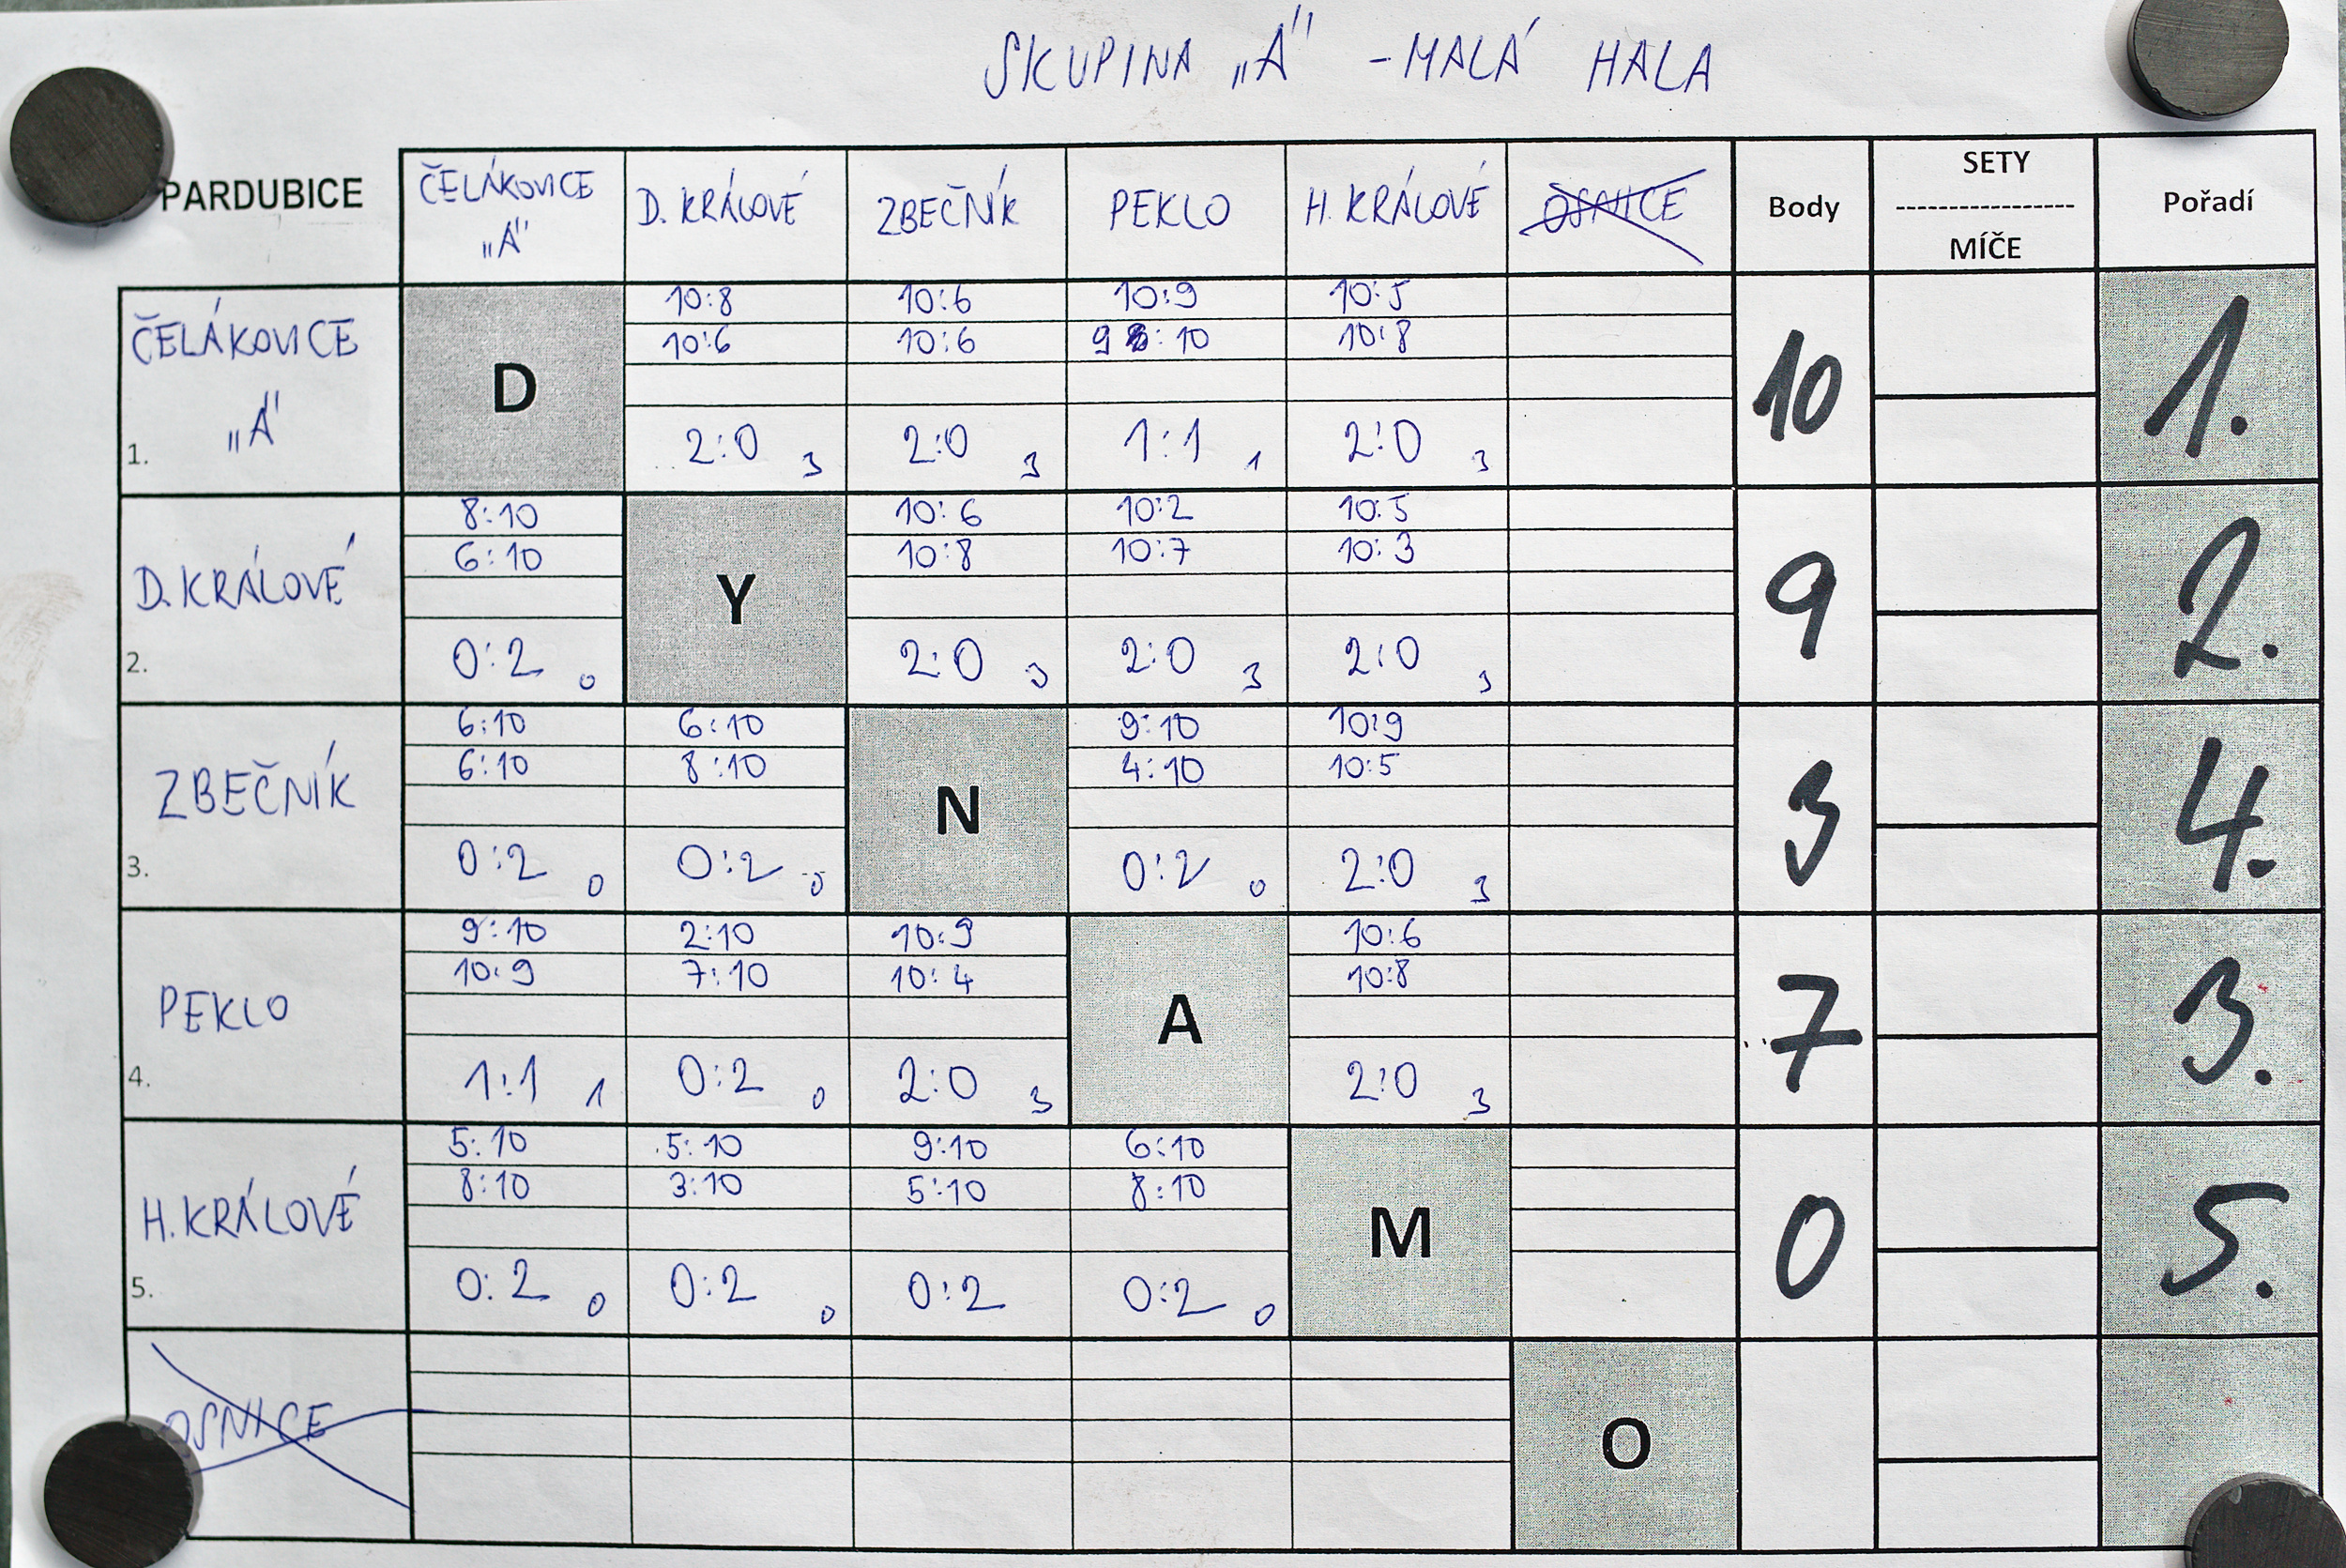 SKUPINA „A" - MALÁ HALA
PARDUBICE
ČELÁKOVICE „A"
D. KRÁLOVÉ
ZBEČNÍK
PEKLO
H. KRÁLOVÉ
OSNICE
Body
SETY
-----------------
MÍČE
Pořadí
ČELÁKOVICE „A"
1.
D
10:8 10:6 10:9 10:5
10:6 10:6 9 :10 10:8
2:0 3 2:0 3 1:1 1 2:0 3
10
1.
D. KRÁLOVÉ
2.
8:10 Y 10:6 10:2 10:5
6:10 10:8 10:7 10:3
0:2 0 2:0 3 2:0 3 2:0 3
9
2.
ZBEČNÍK
3.
6:10 6:10 N 9:10 10:9
6:10 8:10 4:10 10:5
0:2 0 0:2 0 0:2 0 2:0 3
3
4.
PEKLO
4.
9:10 2:10 10:9 A 10:6
10:9 7:10 10:4 10:8
1:1 1 0:2 0 2:0 3 2:0 3
7
3.
H. KRÁLOVÉ
5.
5:10 5:10 9:10 6:10 M
8:10 3:10 5:10 8:10
0:2 0 0:2 0 0:2 0:2 0
0
5.
OSNICE
O